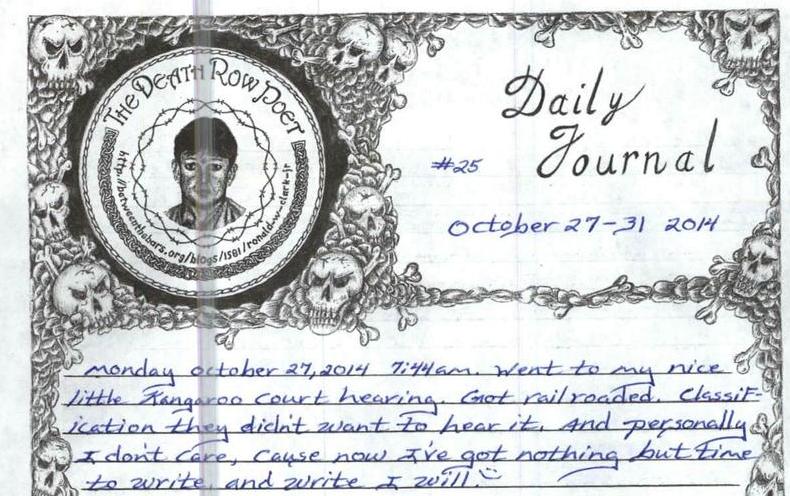 THE DEATH ROW POET
http://betweenthebars.org/blogs/1581/ronald-w-clark-jr
Daily
Journal
#25
October 27-31 2014
Monday October 27, 2014 7:44am. Went to my nice
little Kangaroo Court hearing. Got railroaded. Classif-
ication they didn't want to hear it. And personally
I don't care, cause now I've got nothing but time
to write, and write I will.